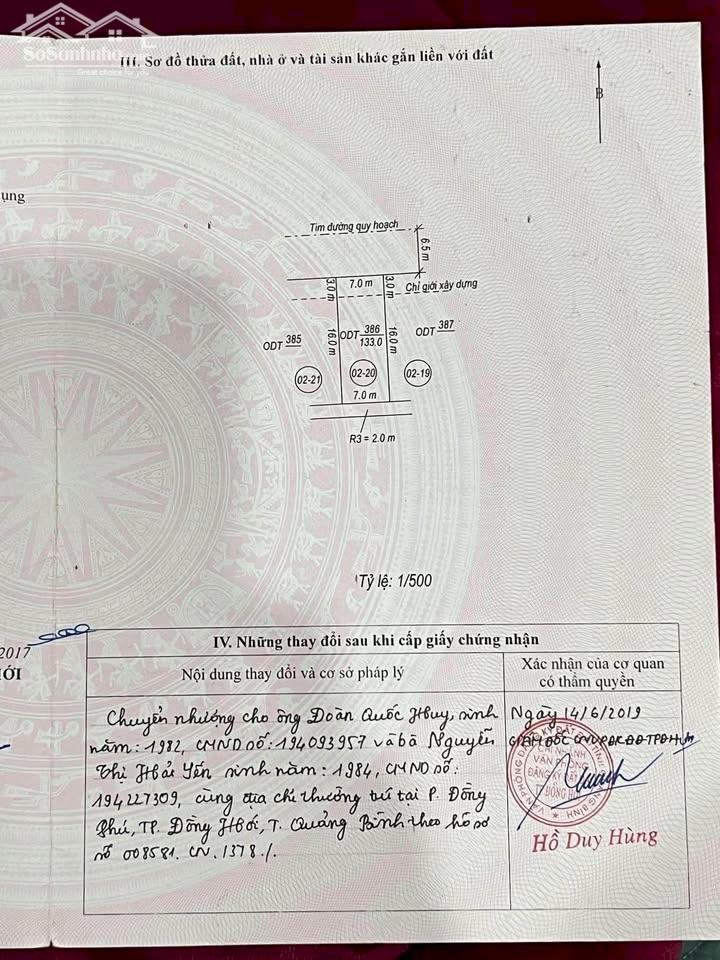 SoSanhnha
Great choice for you
III. Sơ đồ thửa đất, nhà ở và tài sản khác gắn liền với đất
B
ụng
Tim đường quy hoạch
6.5 m
3.0 m
7.0 m
3.0 m
Chỉ giới xây dựng
ODT 385
16.0 m
ODT 386
133.0
16.0 m
ODT 387
02-21
02-20
02-19
7.0 m
R3 = 2.0 m
Tỷ lệ: 1/500
2017
IV. Những thay đổi sau khi cấp giấy chứng nhận
ỚI
Nội dung thay đổi và cơ sở pháp lý
Xác nhận của cơ quan
có thẩm quyền
Chuyển nhượng cho ông Đoàn Quốc Huy, sinh
năm: 1982, CMND số: 194093957 và bà Nguyễn
Thị Hải Yến sinh năm: 1984, CMND số:
194227309, cùng địa chỉ thường trú tại P. Đồng
Phú, TP. Đồng Hới, T. Quảng Bình theo hồ sơ
số 008581.CN.1378./.
Ngày 14/6/2019
GIÁM ĐỐC CNVPĐKĐĐ TP ĐH
Hồ Duy Hùng